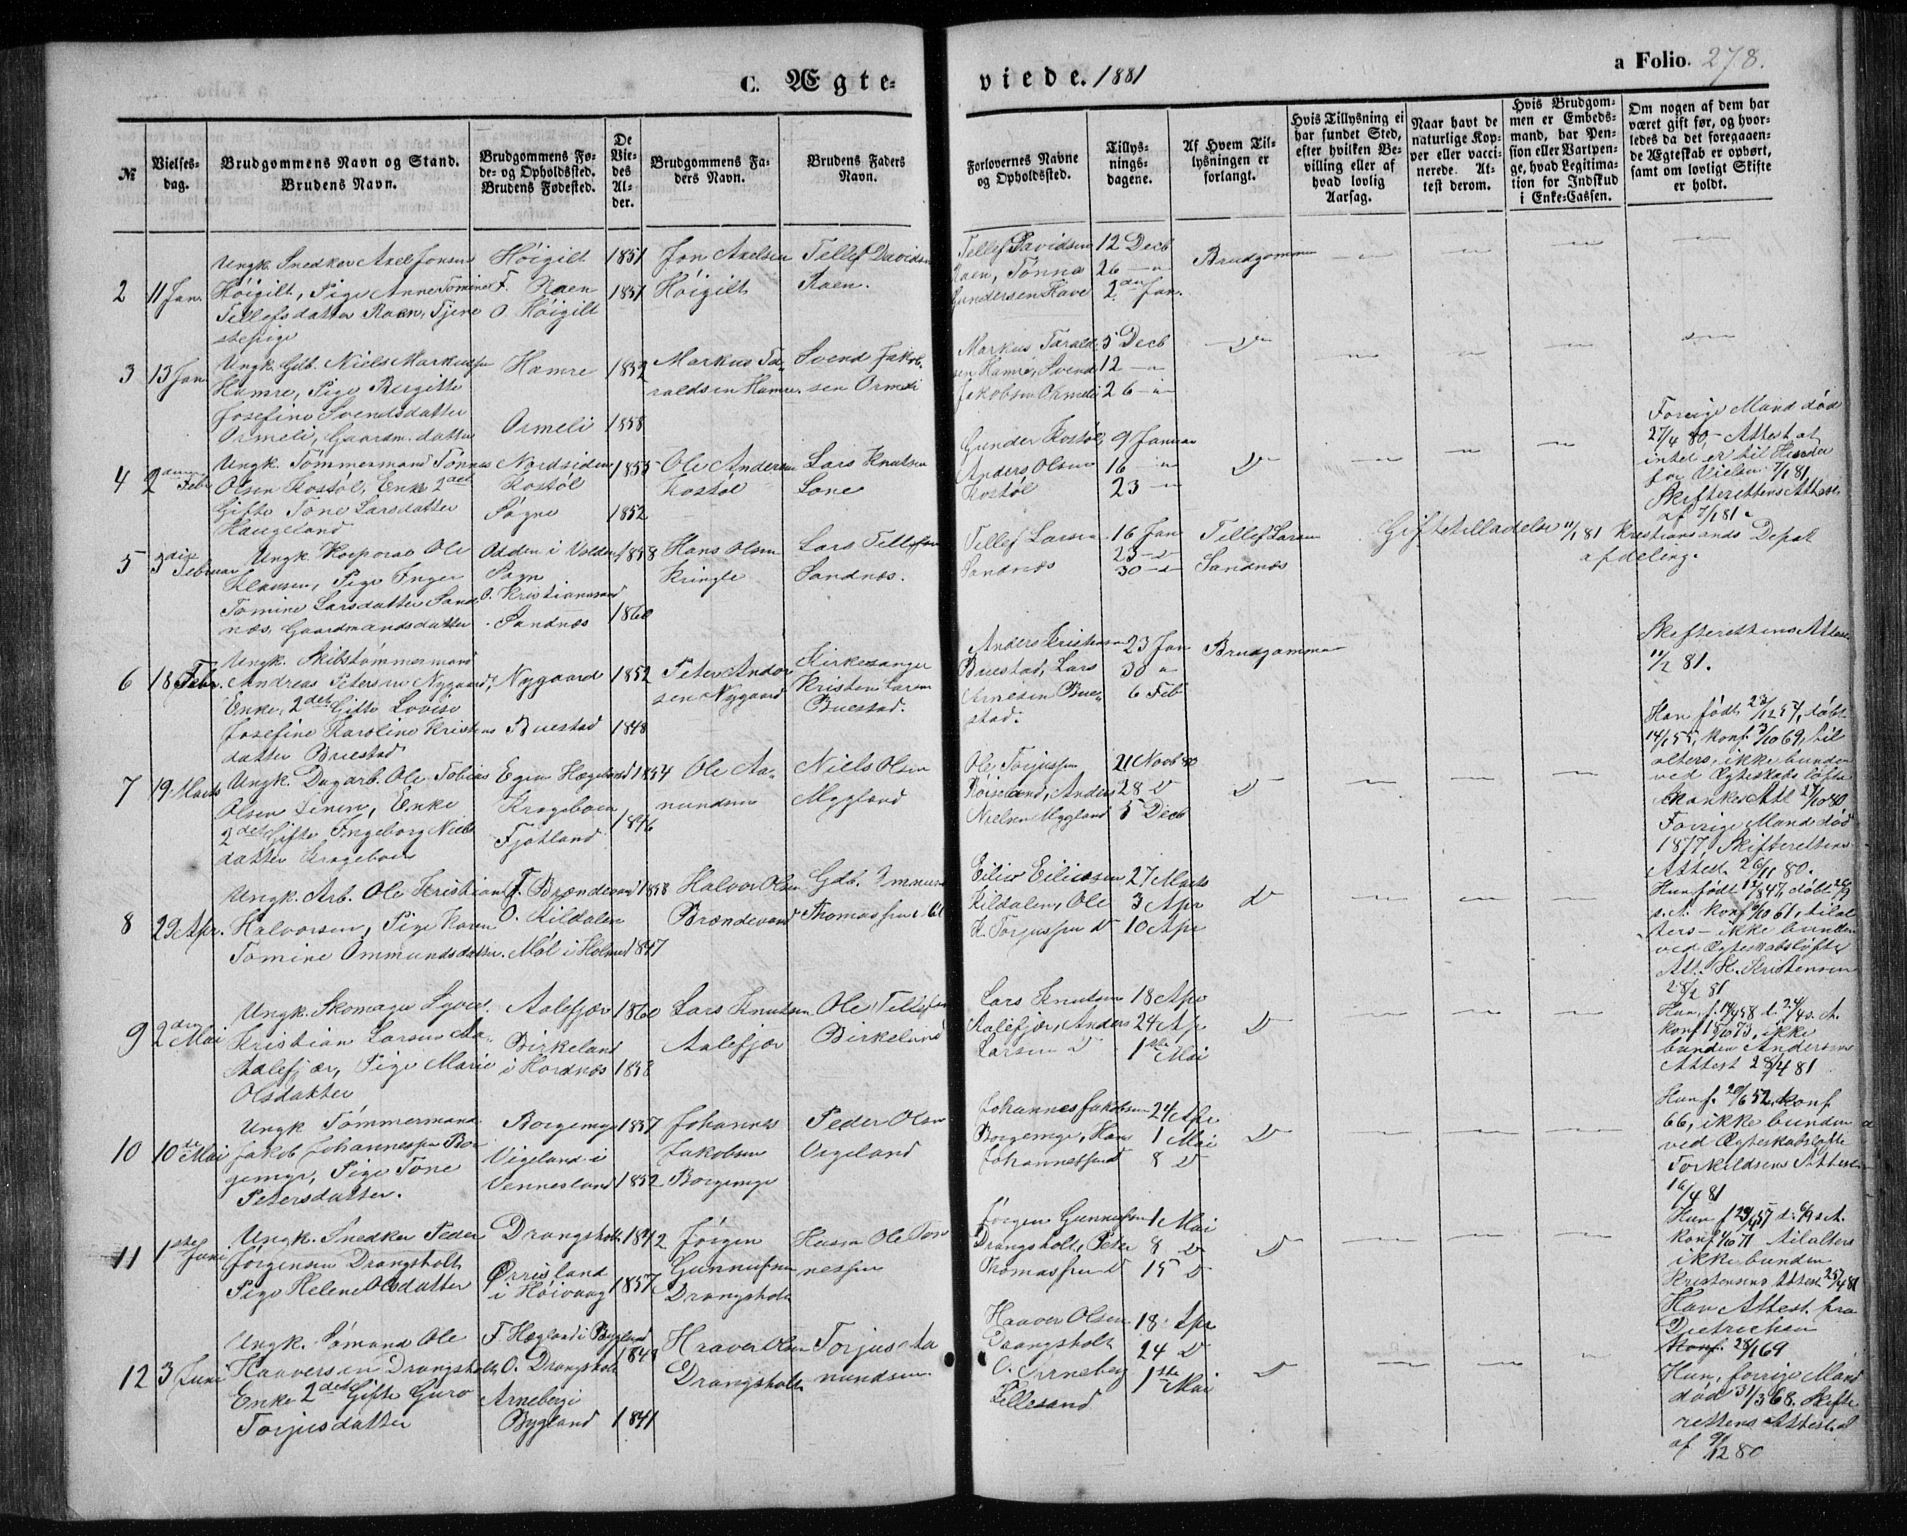 C. Ægte-
viede. 1881
a Folio. 278.
№
Vielses-
dag.
Brudgommens Navn og Stand.
Brudens Navn.
Brudgommens Fø-
de- og Opholdssted.
Brudens Fødested.
De
Vie-
des
Al-
der.
Brudgommens Fa-
ders Navn.
Brudens Faders
Navn.
Forlovernes Navne
og Opholdssted.
Tillys-
nings-
dagene.
Af Hvem Til-
lysningen er
forlangt.
Hvis Tillysning ei
har fundet Sted,
efter hvilken Be-
villing eller af
hvad lovlig
Aarsag.
Naar havt de
naturlige Kop-
per eller vacci-
nerede. At-
test derom.
Hvis Brudgom-
men er Embeds-
mand, har Pen-
sion eller Vartpen-
ge, hvad Legitima-
tion for Indskud
i Enke-Cassen.
Om nogen af dem har
været gift før, og hvor-
ledes da det foregaaen-
de Ægteskab er ophørt,
samt om lovligt Skifte
er holdt.
2
11 Jan.
Ungk. Snedker Axel Jonsen
Høigilt, Pige Anne Tomine
Tellefsdatter Raen, Tjene
stepige
Høigilt
F. Raen
O. Høigilt
1851
1851
Jon Axelsen
Høigilt
Tellef Davidsen
Raen.
Tellef Davidsen
Raen, Tønna
Gundersen Have
12 Decb
26 — "
2den Jan.
Brudgommen
3
13 Jan
Ungk. Gdb. Niels Markussen
Hamre, Pige Birgitte
Josefine Svendsdatter
Ormeli, Gaardm. datter
Hamre
Ormeli
1852
1858
Markus Ta-
raldsen Hamre
Svend Jakob-
sen Ormeli
Markus Tarald-
sen Hamre, Svend
Jakobsen Ormeli
5 Decb
12 — "
26 — "
D
4
2den Febr
Ungk. Tømmermand Tønnes
Olsen Kostøl, Enke 2det
Gifte Tone Larsdatter
Haugeland
Nordsiden
Kostøl
Søgne
1855
1852
Ole Andersen
Kostøl
Lars Knutsen
Lone
Gunder Kostøl,
Anders Olsen
Kostøl
9 Januar
16 — "
23 — "
D
Forrige Mand død
27/4 80, — Attest at
intet er til Hinder
for Vielsen 7/1 81.
Skifterettens Attest
af 7/1 81.
5
3die Februar
Ungk. Korporal Ole
Klausen, Pige Inger
Tomine Larsdatter Sand
næs, Gaardmandsdatter
Odden i
Sogn
O. Kristianssand
Sandnæs
1858
1860
Hans Olsen
Kringle
Lars Tellefsen
Sandnæs.
Tellef Larsen
Sandnæs
16 Jan
23 — D
30 — "
Tellef Larsen
Sandnæs
Giftetilladelse 11/1 81 Kristianssands Depot
afdeling.
6
18 Febr.
Ungk. Skibstømmermand
Andreas Petersen Nygaard,
Enke, 2det Gifte Lovise
Josefine Karoline Kristens
datter Buestad
Nygaard
Buestad
1852
1848
Peter Ander
sen Nygaard
Kirkesanger
Kristen Larsen
Buestad.
Anders Kristensen
Buestad, Lars
Arnesen Bue-
stad.
23 Jan
30 "
6 Feb
Brudgommen
Skifterettens Attest
11/2 81.
7
19 Marts
Ungk. Dagarb. Ole Tobias
Olsen, Enke
2det Gifte Ingeborg Niels
datter Krageboen
Egen Hægeland
Krageboen
Fjotland
1854
1846
Ole Aa-
nundsen
Niels Olsen
Mygland
Ole Torjussen
Røiseland, Anders
Nielsen Mygland
21 Novb 80
28 D
5 Decb
D
Han født 23/12 54, døbt
14/1 55, konf. 3/10 69, til
alters, ikke bunden
ved Ægteskabsløfte
Att 27/10 80
Forrige Mand død
1877. Skifterettens
Attest 26/11 80.
8
29 Apr.
Ungk. Arb. Ole Kristian
Halvorsen, Pige Karen
Tomine Ommundsdatter
F. Brændevand
O. Kildalen
Møl i Holme
1858
1847
Halvor Olsen
Brændevand
Gdb. Ommund
Thomassen Møl
Eiliv Eilivsen
Kildalen, Ole
K. Torjussen D
27 Marts
3 Apr
10 Apr
D
Hun født 12/8 47, døbt 26/9
s. A. konf 6/10 61, tilal
ters — ikke bunden
ved Ægteskabsløfte
Att. H. Kristensen
28/2 81
9
2den Mai
Ungk. Skomager Syvert
Kristian Larsen Aa-
alefjær, Pige Marie
Olsdatter
Aalefjær
Birkeland
i Hordnæs
1860
1858
Lars Knutsen
Aalefjær
Ole Tellefsen
Birkeland
Lars Knutsen
Aalefjær, Anders
Larsen D
18 Apr
24 Apr
1ste Mai
D
Hun f. 14/4 58 d. 24/4 s. A.
konf 18/10 73, ikke
bunden Andersens
Attest 28/4 81
10
10de Mai
Ungk Tømmermand
Jakob Johannessen Bor
gemyr, Pige Tone
Petersdatter.
Borgemyr
Vigeland i
Vennesland
1857
1852
Johannes
Jakobsen
Borgemyr
Peder Olsen
Vigeland
Johannes Jakobsen
Borgemyr, Hans
Johannessen D
24 Apr
1 Mai
8 D
D
Hun f. 20/6 52, konf
66, ikke bunden
ved Ægteskabsløfte
Torkildsens Attest
16/4 81
11
1ste Juni
Ungk. Snedker Peder
Jørgensen Drangsholt
Pige Helene Olsdatter
Drangsholt
Ørrisland
i Høivaag
1842
1857
Jørgen
Gunnufsen
Drangsholt
Husm Ole Tøn
nessen
Jørgen Gunnufsen
Drangsholt, Peter
Thomassen D
1 Mai
8 D
15 D
D
Hun f 29/4 57 d. 6/9 s A.
konf 1/10 71 tilalters
ikke bunden
Kristensens Attest 25/4 81
12
3 Juni
Ungk. Sømand Ole
Haaversen Drangsholt
Enke 2det Gifte Guro
Torjusdatter
F. Hægland i Bygland
O. Drangsholt
Arneberg i
Bygland
1848
1841
Haaver Olsen
Drangsholt
Torjus Aa
nundsen
Haaver Olsen
Drangsholt
O. Arneberg
Lillesand
18 Apr
24 D
1ste Mai
D
Han Attest fra
Dietrichson
konf. 28/1 69
Hun, forrige Mand
død 31/3 68. Skifte
rettens Attest
af 9/12 80